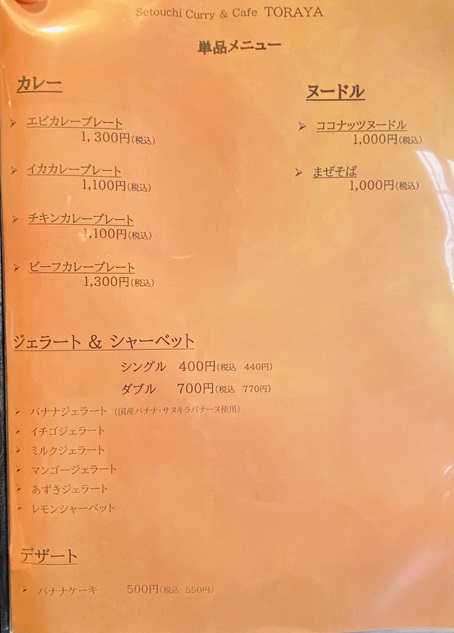 Setouchi Curry & Cafe TORAYA
単品メニュー
カレー
➢ エビカレープレート
1,300円(税込)
➢ イカカレープレート
1,100円(税込)
➢ チキンカレープレート
1,100円(税込)
➢ ビーフカレープレート
1,300円(税込)
ヌードル
➢ ココナッツヌードル
1,000円(税込)
➢ まぜそば
1,000円(税込)
ジェラート & シャーベット
シングル 400円(税込 440円)
ダブル 700円(税込 770円)
➢ バナナジェラート (国産バナナ・サヌキラバナーヌ使用)
➢ イチゴジェラート
➢ ミルクジェラート
➢ マンゴージェラート
➢ あずきジェラート
➢ レモンシャーベット
デザート
➢ バナナケーキ 500円(税込 550円)